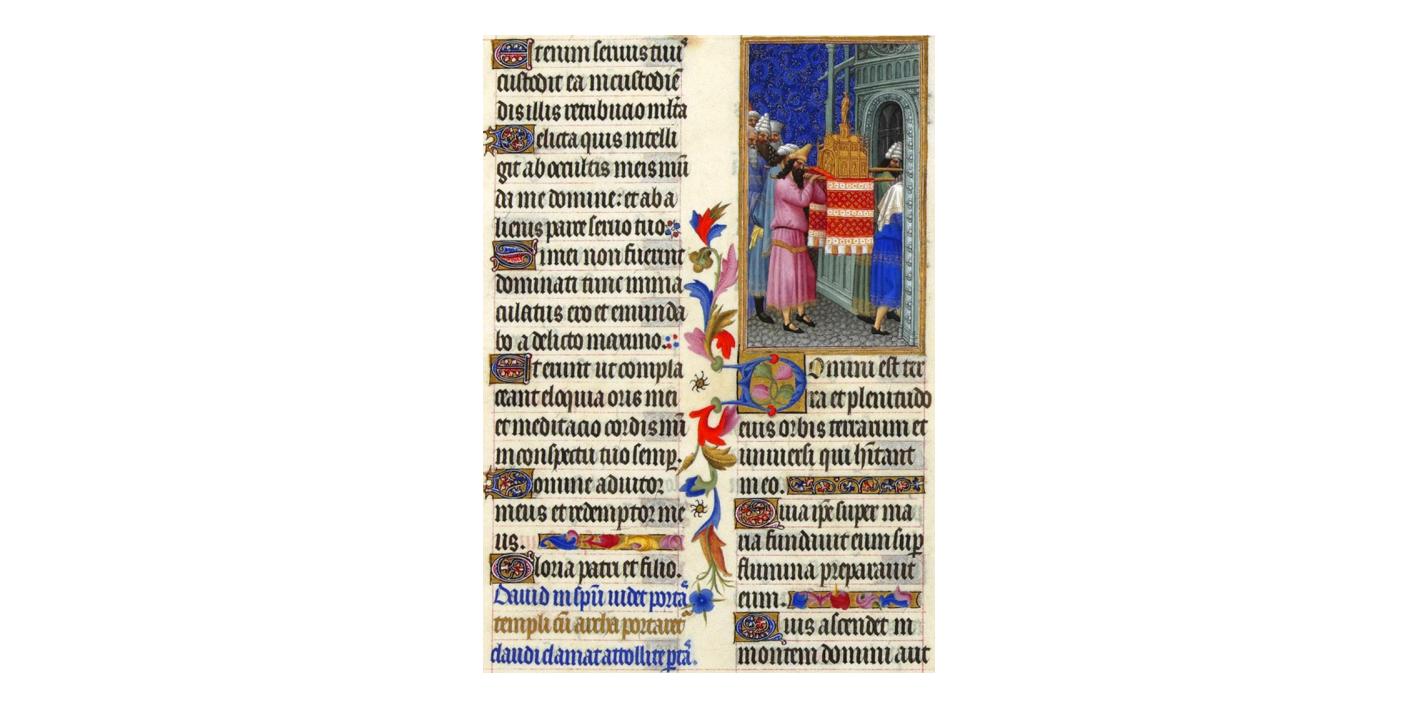 Etenim seruus tuus
custodit ea in custodiē
dis illis retribucio mlta
Delicta quis intelli
git ab occultis meis mū
da me domine: et ab a
lienis parce seruo tuo.
Si mei non fuerint
dominati tunc imma
culatus ero et emunda
bor a delicto maximo.
Et erunt ut compla
ceant eloquia oris mei
et meditacio cordis mei
in conspectu tuo semp.
Domine adiutor
meus et redemptor me
us.
Gloria patri et filio.
Dauid in spū uidet portā
templi cū archa portaret
claudi clamat attollite ptā.
Domini est ter
ra et plenitudo
eius orbis terrarum et
uniuersi qui hītant
in eo.
Quia ipe super ma
ria fundauit eum sup
flumina preparauit
eum.
Quis ascendet in
montem domini aut